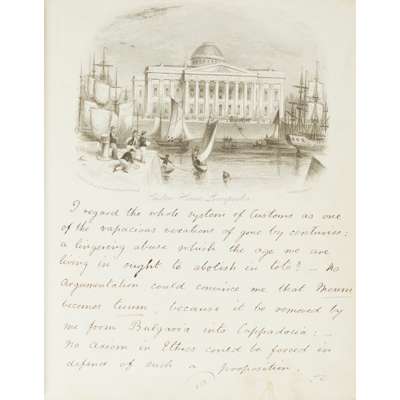 Custom House Liverpool
I regard the whole system of Customs as one
of the rapacious exactions of gone by centuries:
a lingering abuse which the age we are
living in ought to abolish in toto! — No
Argumentation could convince me that Meum
becomes tuum, because it be removed by
me from Bulgaria into Cappadocia: —
No Axiom in Ethics could be forced in
defence of such a proposition.